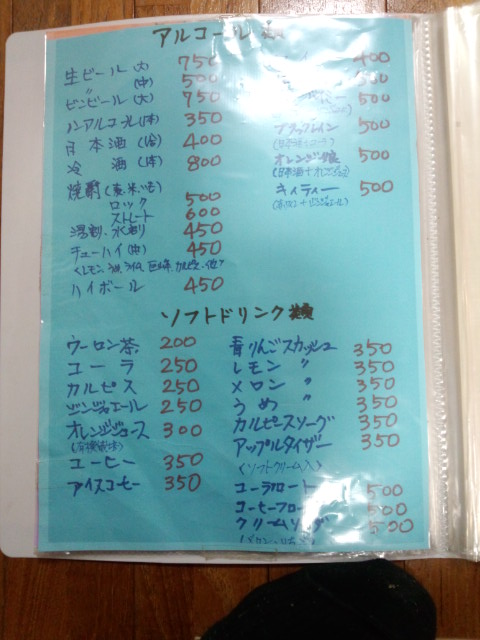 アルコール類
生ビール(大) 750
〃 (中) 500
ビンビール(大) 750
ノンアルコール(本) 350
日本酒(合) 400
冷酒(本) 800
焼酎(麦、米、いも)
ロック 500
ストレート 600
湯割、水割 450
チューハイ(中) 450
ハイボール 450
400
500
500
500
オレンジ娘 500
キィティー 500
ソフトドリンク類
ウーロン茶 200
コーラ 250
カルピス 250
ジンジャエール 250
オレンジジュース 300
コーヒー 350
アイスコーヒー 350
青りんごスカッシュ 350
レモン 〃 350
メロン 〃 350
うめ 〃 350
カルピスソーダ 350
アップルタイザー 350
<ソフトクリーム入>
コーラフロート 500
コーヒーフロ 500
クリームソーダ 500